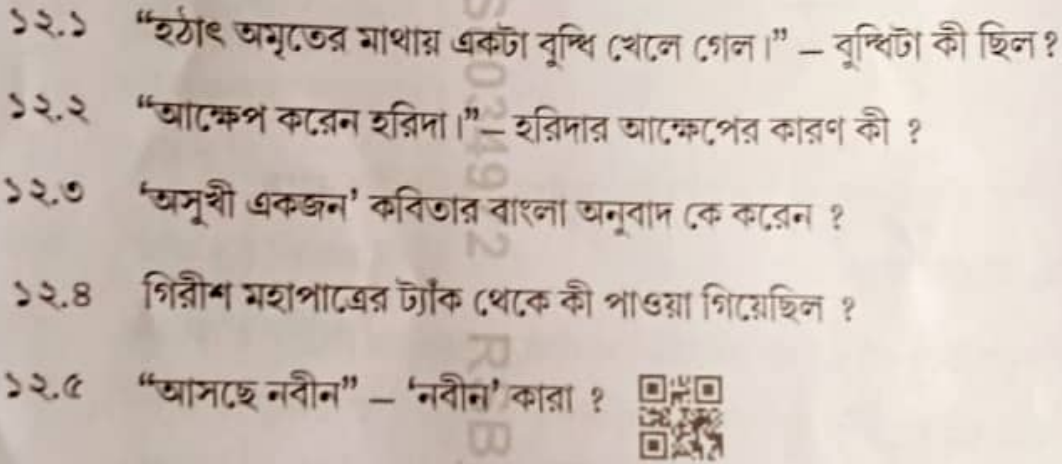 ১২.১ “হঠাৎ অমৃতের মাথায় একটা বুদ্ধি খেলে গেল।” – বুদ্ধিটা কী ছিল ?
১২.২ “আক্ষেপ করেন হরিদা।” – হরিদার আক্ষেপের কারণ কী ?
১২.৩ ‘অসুখী একজন’ কবিতার বাংলা অনুবাদ কে করেন ?
১২.৪ গিরীশ মহাপাত্রের ট্যাঁক থেকে কী পাওয়া গিয়েছিল ?
১২.৫ “আসছে নবীন” – ‘নবীন’ কারা ?